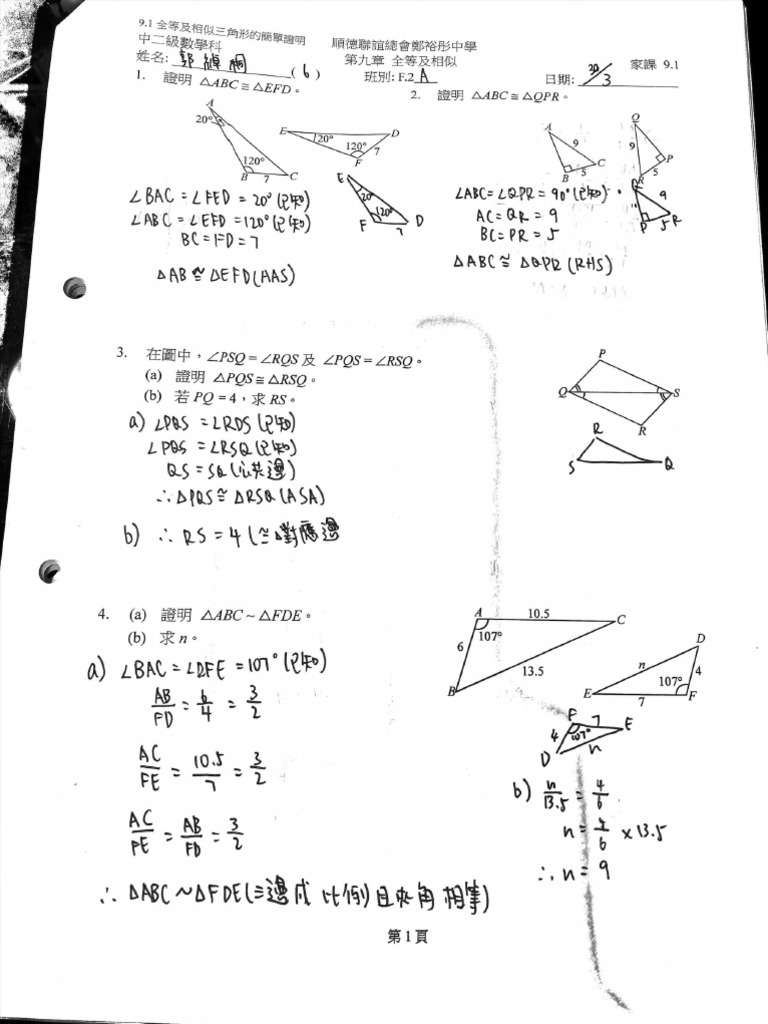 9.1 全等及相似三角形的簡單證明
中二級數學科 順德聯誼總會鄭裕彤中學
姓名: ( 6 ) 第九章 全等及相似 家課 9.1
班別: F.2 A 日期: 30/3
1. 證明 △ABC ≅ △EFD。
2. 證明 △ABC ≅ △QPR。
A
20°
120°
B 7 C
E 20° 120° D
F 7
E
20°
120°
F 7 D
A
9
B 5 C
Q
9
P
R 5
Q 9
P 5 R
∠BAC = ∠FED = 20° (已知)
∠ABC = ∠EFD = 120° (已知)
BC = FD = 7
△AB ≅ △EFD (AAS)
∠ABC = ∠QPR = 90° (已知)
AC = QR = 9
BC = PR = 5
△ABC ≅ △QPR (RHS)
3. 在圖中,∠PSQ = ∠RQS 及 ∠PQS = ∠RSQ。
(a) 證明 △PQS ≅ △RSQ。
(b) 若 PQ = 4,求 RS。
P
Q S
R
R
S Q
a) ∠PQS = ∠RDS (已知)
∠PQS = ∠RSQ (已知)
QS = SQ (公共邊)
∴ △PQS ≅ △RSQ (ASA)
b) ∴ RS = 4 (≅△對應邊
4. (a) 證明 △ABC ~ △FDE。
(b) 求 n。
A 10.5 C
107°
6
13.5
B
D
n
4
107°
E 7 F
F 7 E
4 107°
D n
a) ∠BAC = ∠DFE = 107° (已知)
AB/FD = 6/4 = 3/2
AC/FE = 10.5/7 = 3/2
AC/FE = AB/FD = 3/2
∴ △ABC ~ △FDE (三邊成比例且夾角相等)
b) n/13.5 = 4/6
n = 4/6 × 13.5
∴ n = 9
第 1 頁